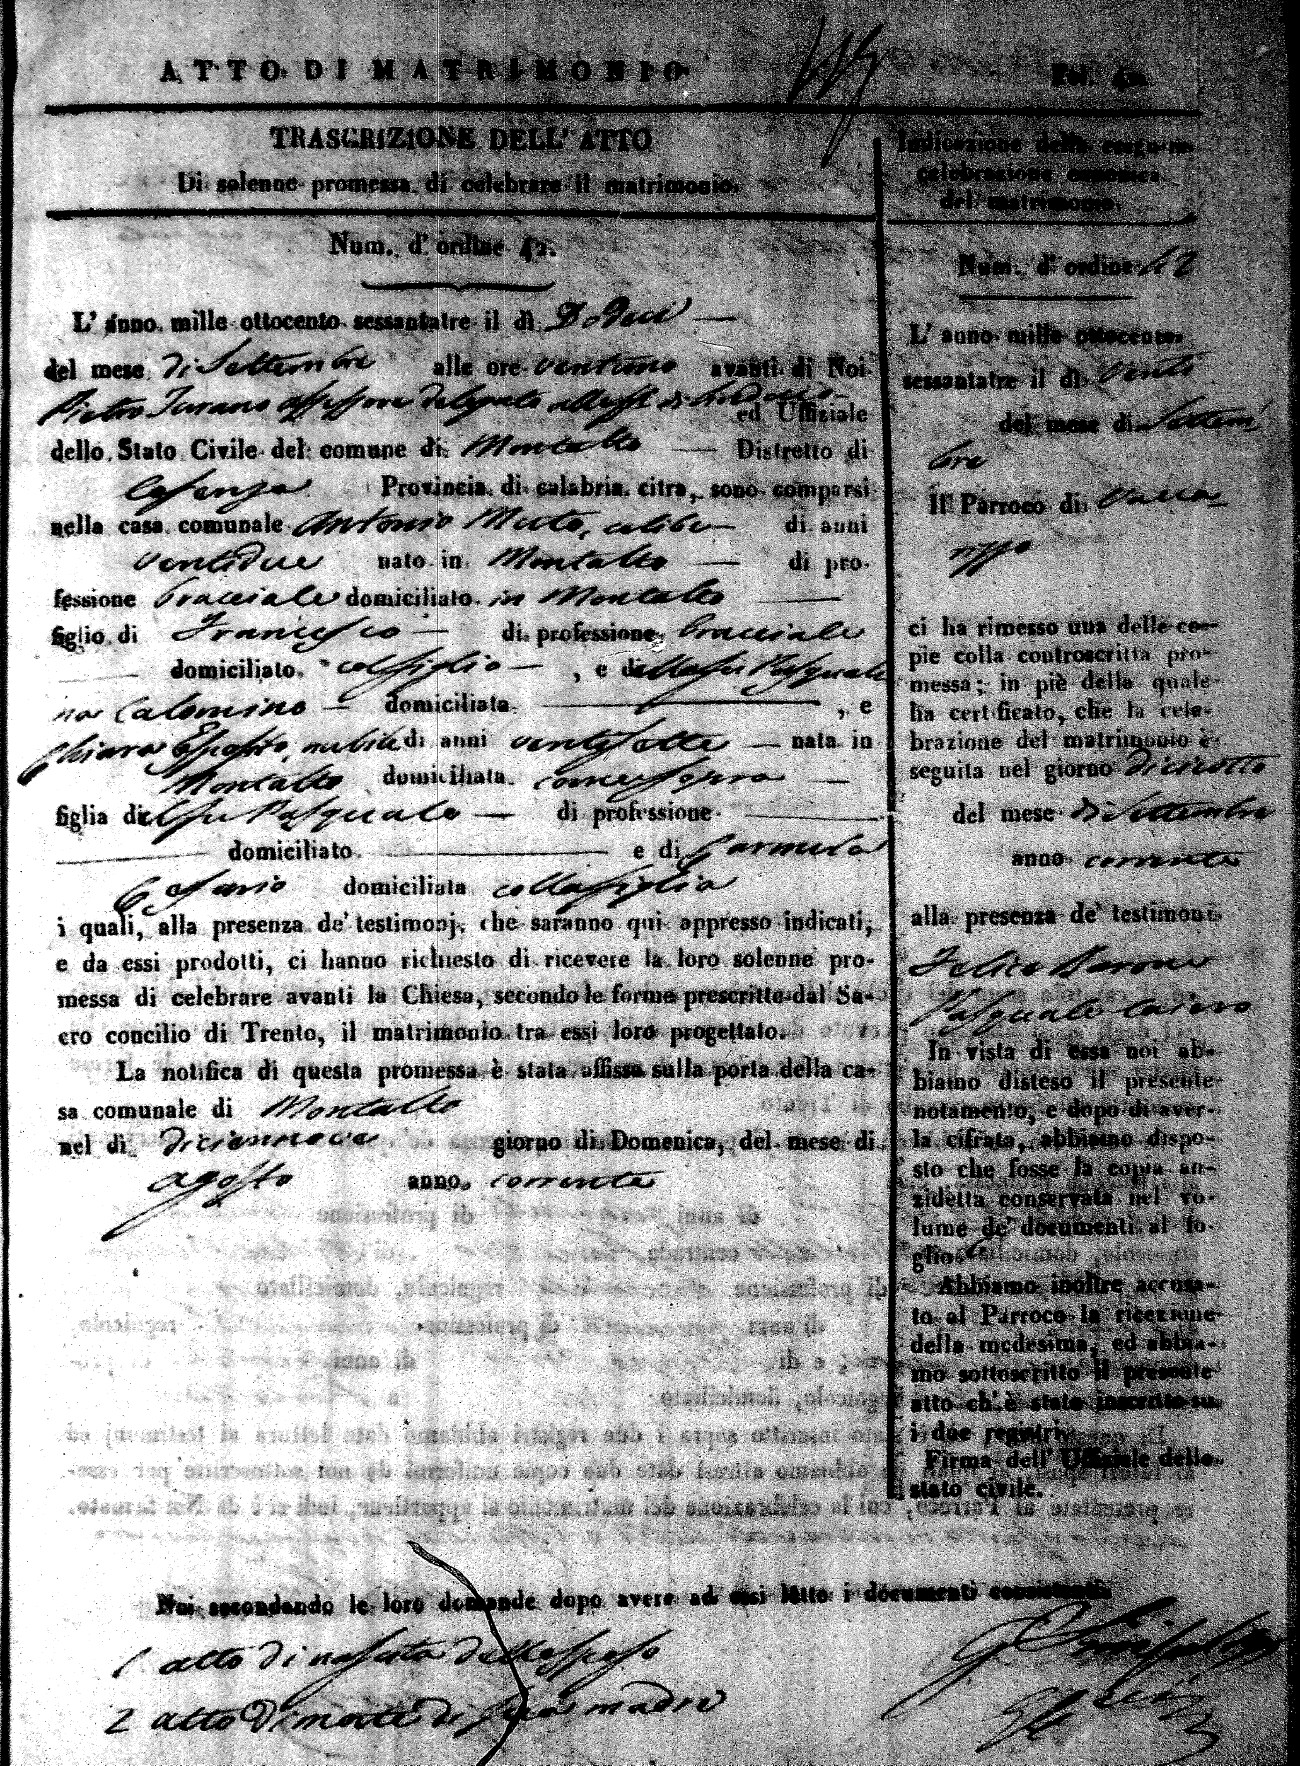 ATTO DI MATRIMONIO
Fol.
TRASCRIZIONE DELL' ATTO
Di solenne promessa di celebrare il matrimonio.
Num. d' ordine 42.
L' anno mille ottocento sessantatre il dì Dodeci
del mese di Settembre alle ore ventuno avanti di Noi
Pietro assessore delegato ed Uffiziale
dello Stato Civile del comune di Montalto Distretto di
Cosenza Provincia di calabria citra, sono comparsi
nella casa comunale Antonio Muto, celibe di anni
ventidue nato in Montalto di pro-
fessione bracciale domiciliato in Montalto
figlio di Francesco di professione bracciale
domiciliato col figlio, e della fu Pasquale
na Calomino domiciliata, e
Chiara Esposito, nubile di anni ventisette nata in
Montalto domiciliata come sopra
figlia del fu Pasquale di professione
domiciliato e di Carmela
domiciliata colla figlia
i quali, alla presenza de' testimonj, che saranno qui appresso indicati,
e da essi prodotti, ci hanno richiesto di ricevere la loro solenne pro-
messa di celebrare avanti la Chiesa, secondo le forme prescritte dal Sa-
cro concilio di Trento, il matrimonio tra essi loro progettato.
La notifica di questa promessa è stata affissa sulla porta della ca-
sa comunale di Montalto
nel dì diciannove giorno di Domenica, del mese di
agosto anno corrente
Indicazione della
celebrazione canonica
del matrimonio.
Num. d' ordine 42
L' anno mille ottocento
sessantatre il dì venti
del mese di Settem
bre
Il Parroco di Vacca
rizzo
ci ha rimesso una delle co-
pie colla controscritta pro-
messa; in piè della quale
ha certificato, che la cele-
brazione del matrimonio è
seguita nel giorno diciotto
del mese di Settembre
anno corrente
alla presenza de' testimoni
Felice Barone
Pasquale
In vista di essa noi ab-
biamo disteso il presente
notamento, e dopo di aver-
la cifrata, abbiamo dispo-
sto che fosse la copia an-
zidetta conservata nel vo-
lume de' documenti al fo-
glio
Abbiamo inoltre accusa-
to al Parroco la ricezione
della medesima, ed abbia-
mo sottoscritto il presente
atto ch' è stato inscritto su
i due registri.
Firma dell' Uffiziale dello
stato civile.
Noi secondando le loro domande dopo avere ad essi letto i documenti consistenti
1 atto di nascita dello sposo
2 atto di morte di sua madre